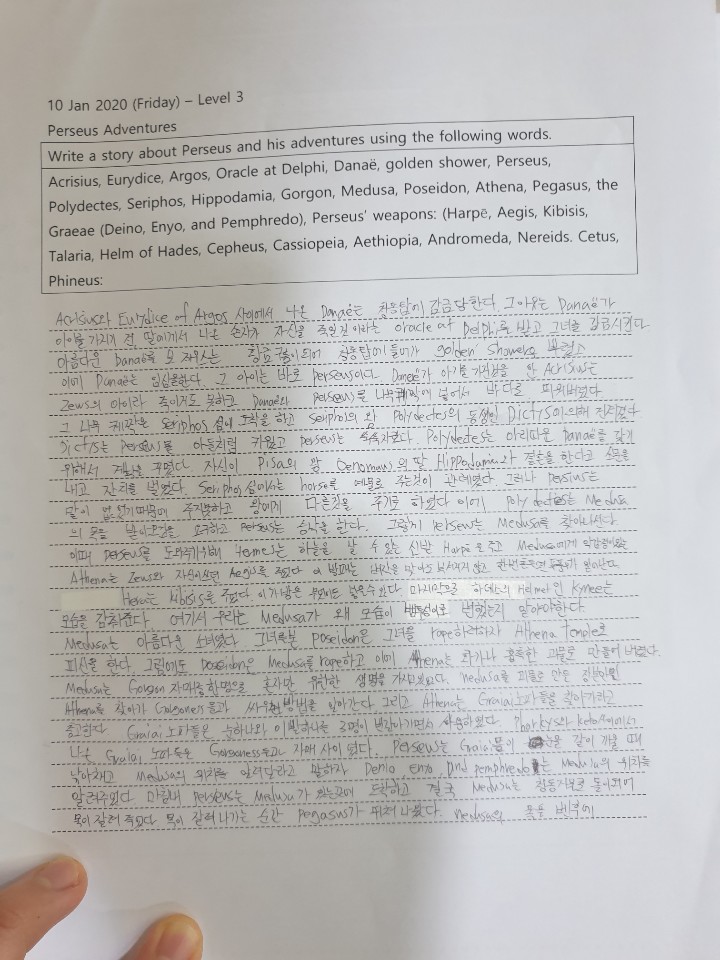 10 Jan 2020 (Friday) – Level 3
Perseus Adventures
Write a story about Perseus and his adventures using the following words.
Acrisius, Eurydice, Argos, Oracle at Delphi, Danaë, golden shower, Perseus,
Polydectes, Seriphos, Hippodamia, Gorgon, Medusa, Poseidon, Athena, Pegasus, the
Graeae (Deino, Enyo, and Pemphredo), Perseus' weapons: (Harpē, Aegis, Kibisis,
Talaria, Helm of Hades, Cepheus, Cassiopeia, Aethiopia, Andromeda, Nereids. Cetus,
Phineus:
Acrisius와 Eurydice of Argos 사이에서 나온 Danaë는 청동탑에 감금당한다. 그 이유는 Danaë가
아이를 가지게 전 딸에게서 나온 손자가 자신을 죽일것 이라는 oracle at Delphi를 받고 그녀를 감금시킨다.
아름다운 Danaë를 본 제우스는 황금 되어 청동탑에 들어가 golden shower
이에 Danaë는 임신을한다. 그 아이는 바로 Perseus이다. Danaë가 아기를 가졌음을 안 Acrisius는
Zeus의 아이라 죽이지도 못하고 Danaë와 Perseus를 나무궤짝에 넣어서 바다로
그 나무 궤짝은 Seriphos 섬에 도착을 하고 Seriphos의 왕 Polydectes의 동생인 Dictys에 의해
Dictys는 Perseus를 아들처럼 키웠고 Perseus는 Polydectes는 아리따운 Danaë를 갖기
위해서 계획을 꾸몄다. 자신이 Pisa의 왕 Oenomaus의 딸 Hippodamia와 결혼을 한다고 소문을
내고 잔치를 벌였다. Seriphos 섬에서는 horse를 예물로 주는것이 관례였다. 그러나 Perseus는
말이 없었기때문에 주지못하고 왕에게 다른것을 주기로 하였다 이에 Polydectes는 Medusa
의 목을 요구하고 Perseus는 승낙을 한다. 그렇게 Perseus는 Medusa를 찾아나선다.
이때 Perseus를 도와주기위해 Hermes는 하늘을 날 수 있는 신발 Harpē을 주고 Medusa에게
Athena는 Zeus와 자신이쓰던 Aegis를 주었다 이 방패는
Hera는 Kibisis를 주었다 이 가방은 무엇이든 넣을수있다 마지막으로 하데스의 Helmet인 Kynee는
모습을 감춰준다 여기서 우리는 Medusa가 왜 모습이 변했는지 알아야한다.
Medusa는 아름다운 소녀였다 그녀를본 Poseidon은 그녀를 rape하려하자 Athena Temple로
피신을 한다. 그럼에도 Poseidon은 Medusa를 rape하고 이에 Athena는 화가나 흉측한 괴물로 만들어 버렸다.
Medusa는 Gorgon 자매중 한명으로 혼자만 유한한 생명을 가지고있다. Medusa를
Athena를 찾아가 Gorgoness들과 싸우는 방법을 알아간다 그리고 Athena는 Graiai 노파들을 찾아가라고
충고한다 Graiai 노파들은 눈하나와 이빨하나를 3명이 번갈아가면서 사용하였다. Phorkys와 Keto 사이에서
나온 Graiai 노파들은 Gorgoness들과 자매 사이 였다. Perseus는 Graiai들이 눈을 갈아 끼울 때
낚아채고 Medusa의 위치를 알려달라고 말하자 Deino, Enyo, and Pemphredo는 Medusa의 위치를
알려주었다 마침내 Perseus는 Medusa가 있는곳에 도착하고 결국 Medusa는
목이 잘려 죽었다 목이 잘려 나가는 순간 Pegasus가 튀쳐 나왔다. Medusa의 목을